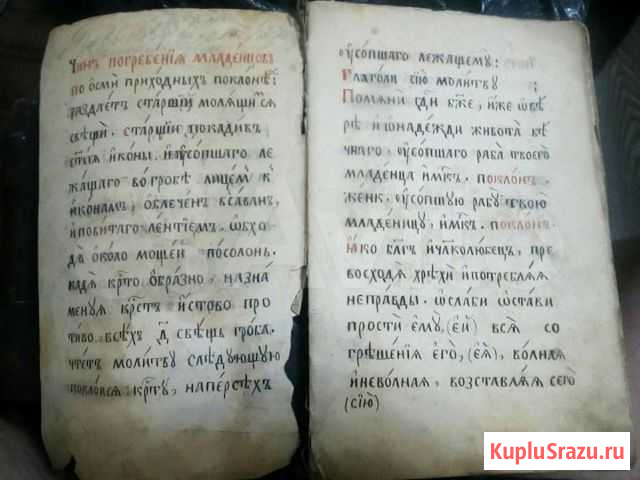 Чинъ погребенїѧ младенцовъ
по осми приходныхъ поклонѣ:
раздаетъ старшїи молѧщимсѧ
свѣщи. старшїи покадивъ
ст҃ыѧ иконы, и оусопшаго ле
жащаго во гробѣ лицемъ къ
иконамъ, облеченъ в саванъ,
и повитаго лентїемъ. ѡбхо
дѧ около мощей посолонь.
кадѧ крⷭ҇то образно, назна
менуѧ крⷭ҇тъ истово про
тиво всѣхъ д҃, свѣщъ гроба.
чтетъ молитву слѣдующую
поклонсѧ крⷭ҇ту, на персѣхъ
оусопшаго лежащему:
Глаголи сїю молитву
Помѧни гдⷭ҇и бж҃е, иже ѡ вѣ
рѣ и ѡ надежди живота вѣ
чнаго, оусопшаго раба твоего
младенца имⷬ҇къ. поклонъ.
женк. оусопшую рабу твою
младеницу, имⷬ҇къ. поклонъ
Ꙗко бл҃гъ и чл҃колюбецъ, пре
восходѧ хрѣхи и потреблѧѧ
неправды. ѡслаби ѡстави
прости ему, (ей) всѧ со
грѣшенїѧ его, (еѧ), волнаѧ
и неволнаѧ, возставлѧѧ сего
(сїю)
KupluSrazu.ru